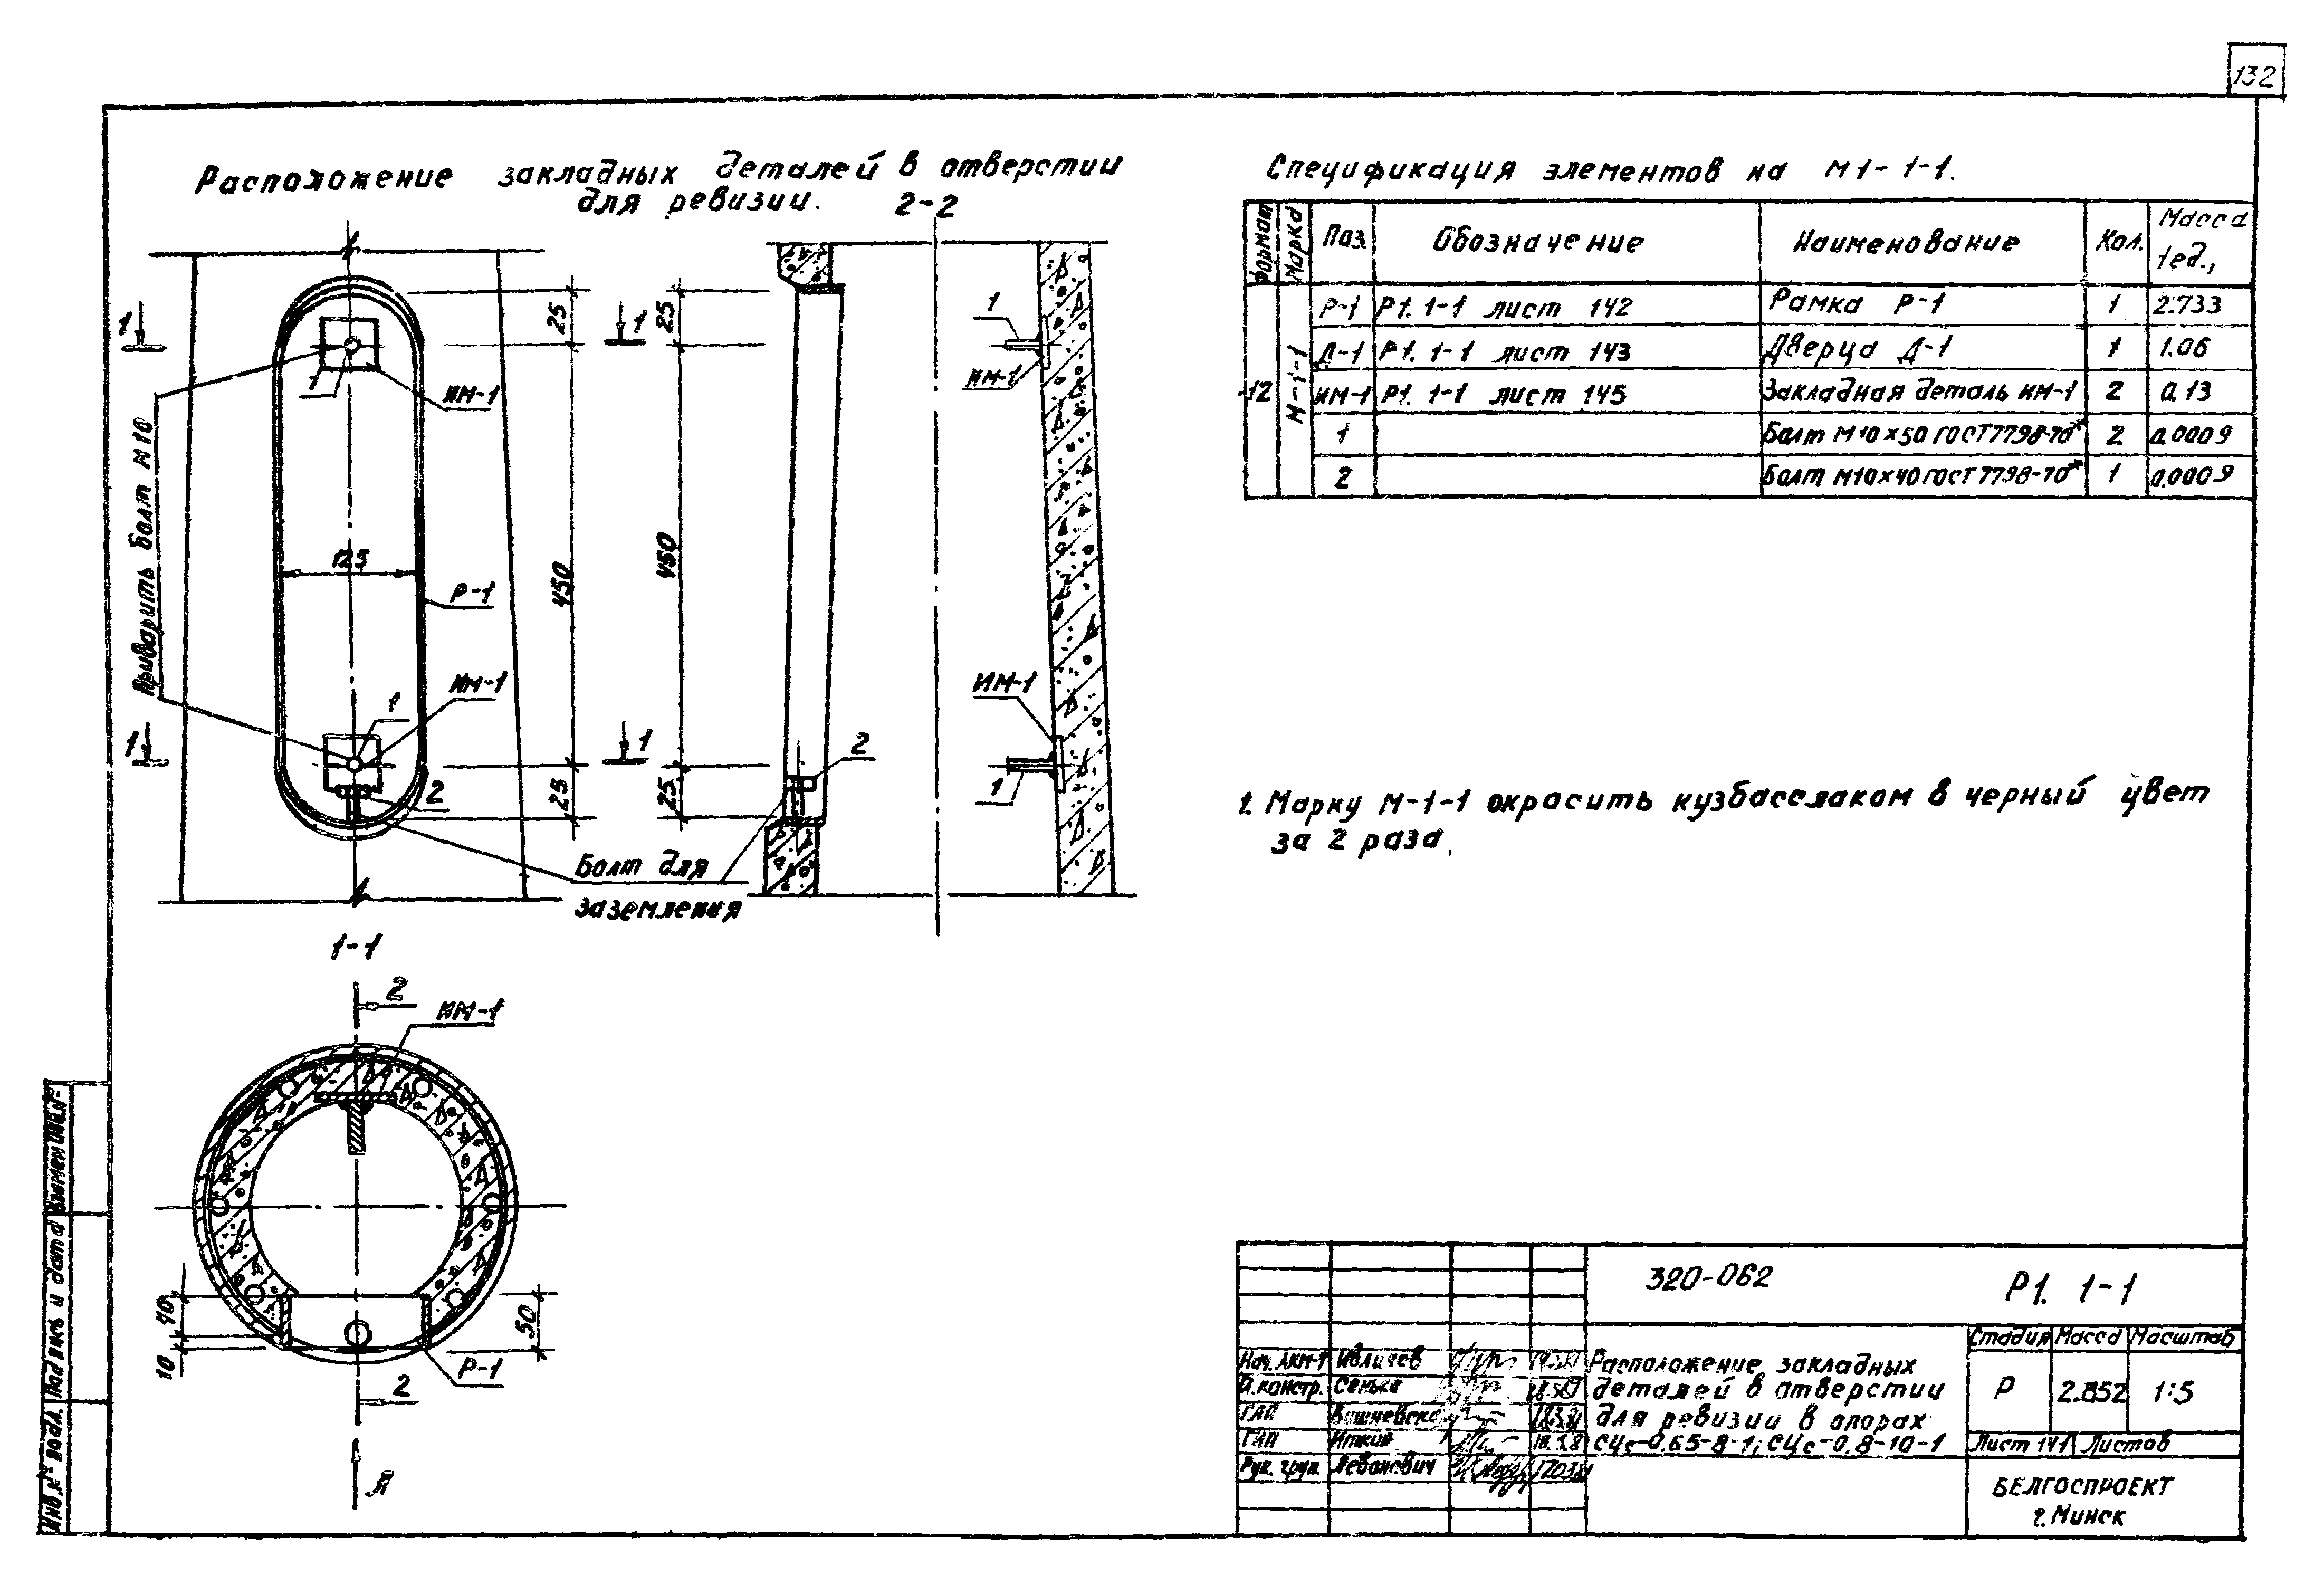 132
Расположение закладных деталей в отверстии
для ревизии. 2-2
1
1
25
25
1
1
ИМ-1
ИМ-1
Приварить болт М10
125
Р-1
450
450
ИМ-1
1
ИМ-1
1
1
2
1
25
25
2
Болт для
заземления
1-1
2
ИМ-1
40
10
50
Р-1
2
А
Спецификация элементов на М1-1-1.
Формат Марка Поз. Обозначение Наименование Кол. Масса 1ед.,
Р-1 Р1. 1-1 лист 142 Рамка Р-1 1 2.733
Д-1 Р1. 1-1 лист 143 Дверца Д-1 1 1.06
12 М-1-1 ИМ-1 Р1. 1-1 лист 145 Закладная деталь ИМ-1 2 0.13
1 Болт М10×50 ГОСТ 7798-70* 2 0.0009
2 Болт М10×40 ГОСТ 7798-70* 1 0.0009
1. Марку М-1-1 окрасить кузбасслаком в черный цвет
за 2 раза.
320-062 Р1. 1-1
Стадия Масса Масштаб
Р 2.852 1:5
Лист 141 Листов
Расположение закладных
деталей в отверстии
для ревизии в опорах
СЦс-0,65-8-1; СЦс-0,8-10-1
Нач. АКМ-1 Ивличев
Гл.констр. Сенько
ГАП
ГИП Иткин
Рук. груп. Леванович
БЕЛГОСПРОЕКТ
г. Минск
Инв.№ подл. Подпись и дата Взамен инв.№